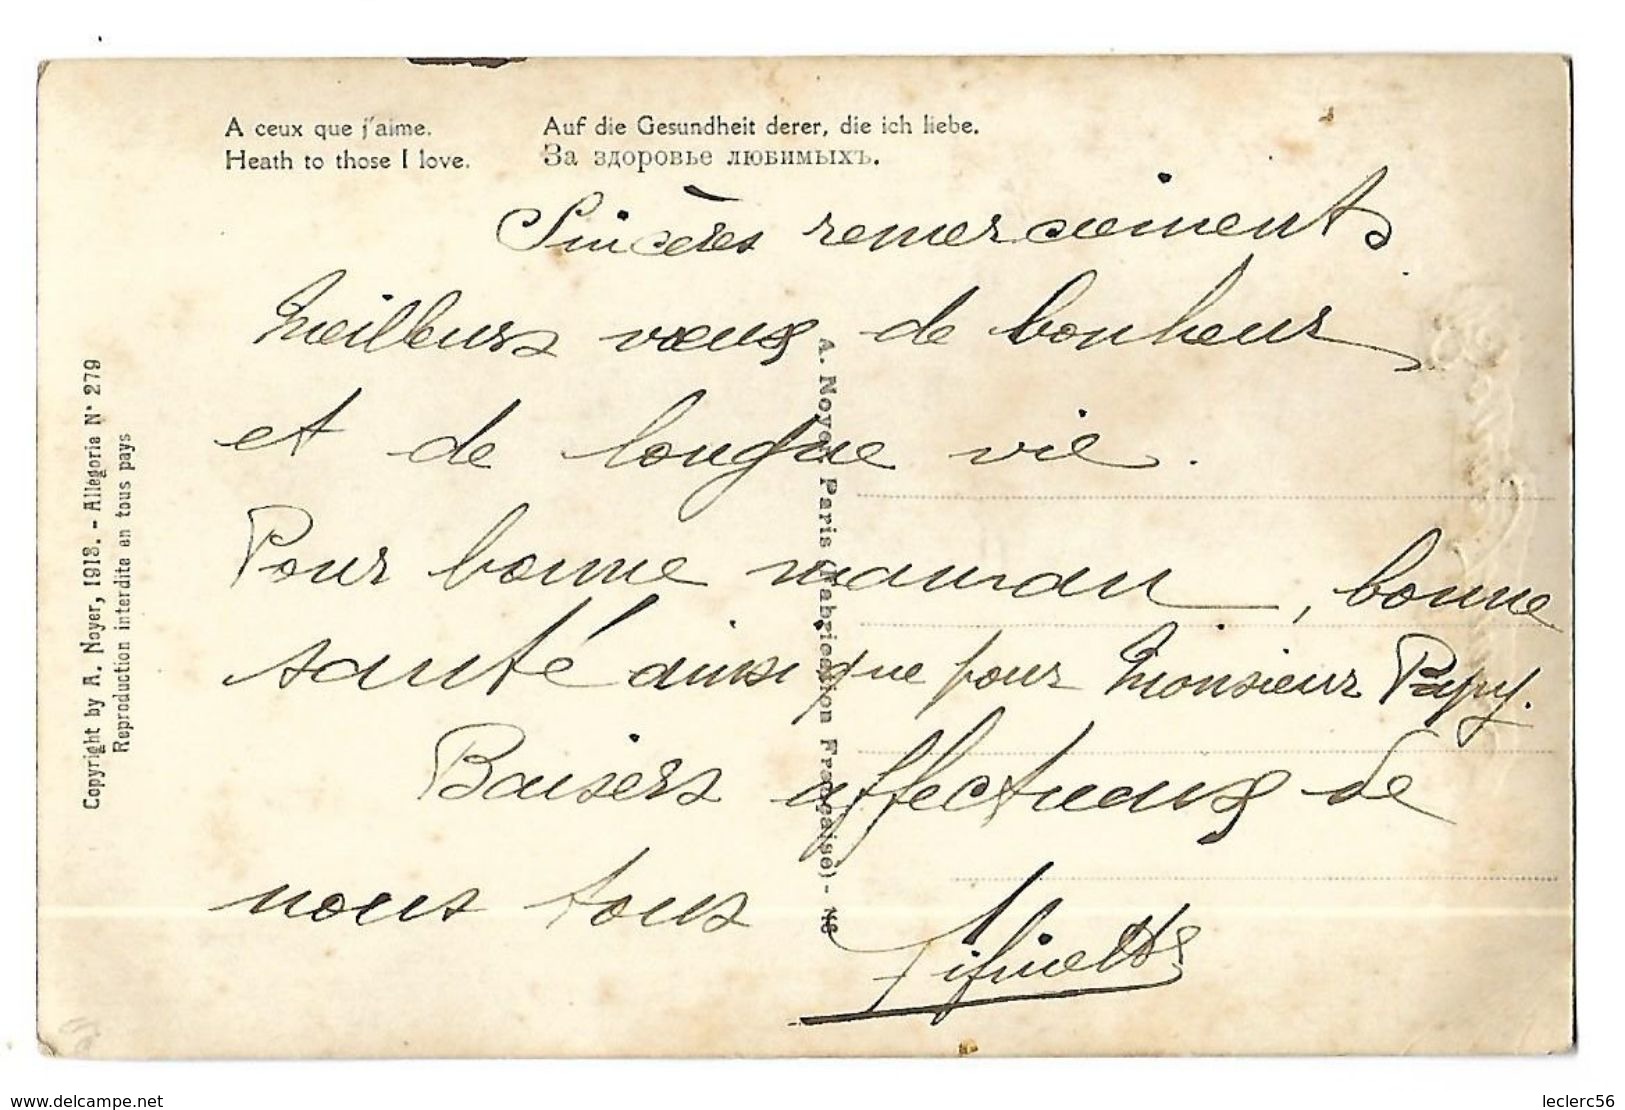 A ceux que j'aime.
Heath to those I love.
Auf die Gesundheit derer, die ich liebe.
За здоровье любимыхъ.
Sincères remerciements
Meilleurs vœux de bonheur
et de longue vie.
Pour bonne maman, bonne
santé ainsi que pour Monsieur Papy.
Baisers affectueux de
nous tous
Fifinette
Copyright by A. Noyer, 1918. - Allégorie N° 279
Reproduction interdite en tous pays
A. Noyer, Paris (Fabrication Française) - N6
www.delcampe.net
leclerc56